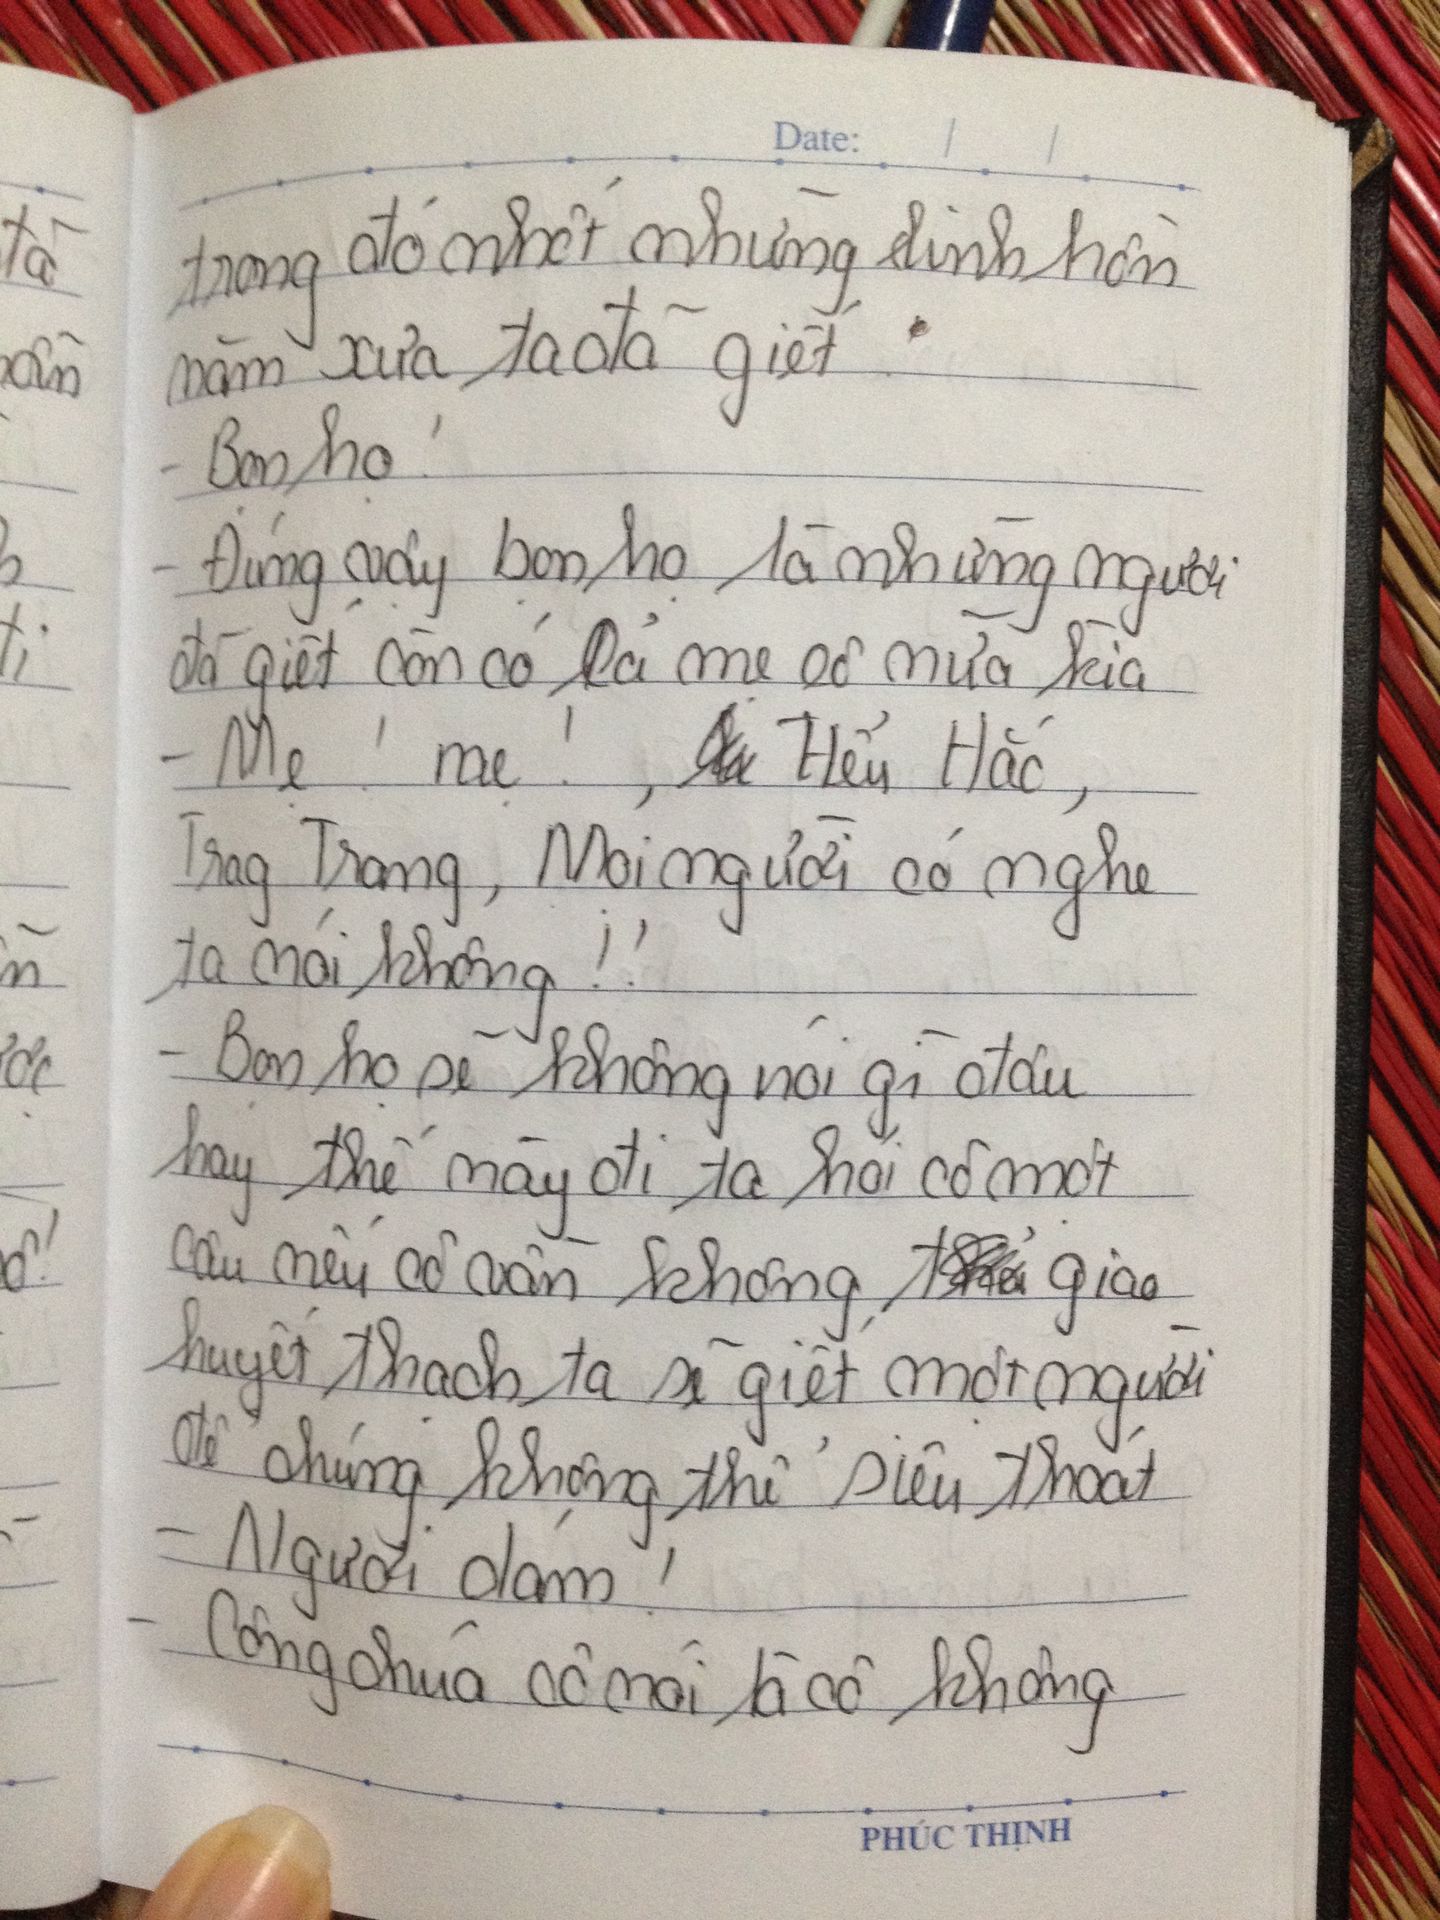 Date: / /
trong đó nhốt những linh hồn
năm xưa ta đã giết.
- Bọn họ!
- Đúng vậy bọn họ là những người
đã giết còn có cả mẹ cô nữa kìa
- Mẹ! mẹ!, Hểu Hắc,
Trag Trang, Mọi người có nghe
ta nói không!!
- Bọn họ sẽ không nói gì đâu
hay thế này đi ta hỏi cô một
câu nếu cô vẫn không giao
huyết thạch ta sẽ giết một người
để chúng không thể siêu thoát
- Ngươi dám!
- Công chúa cô nói là cô không
PHÚC THỊNH
tã
ti